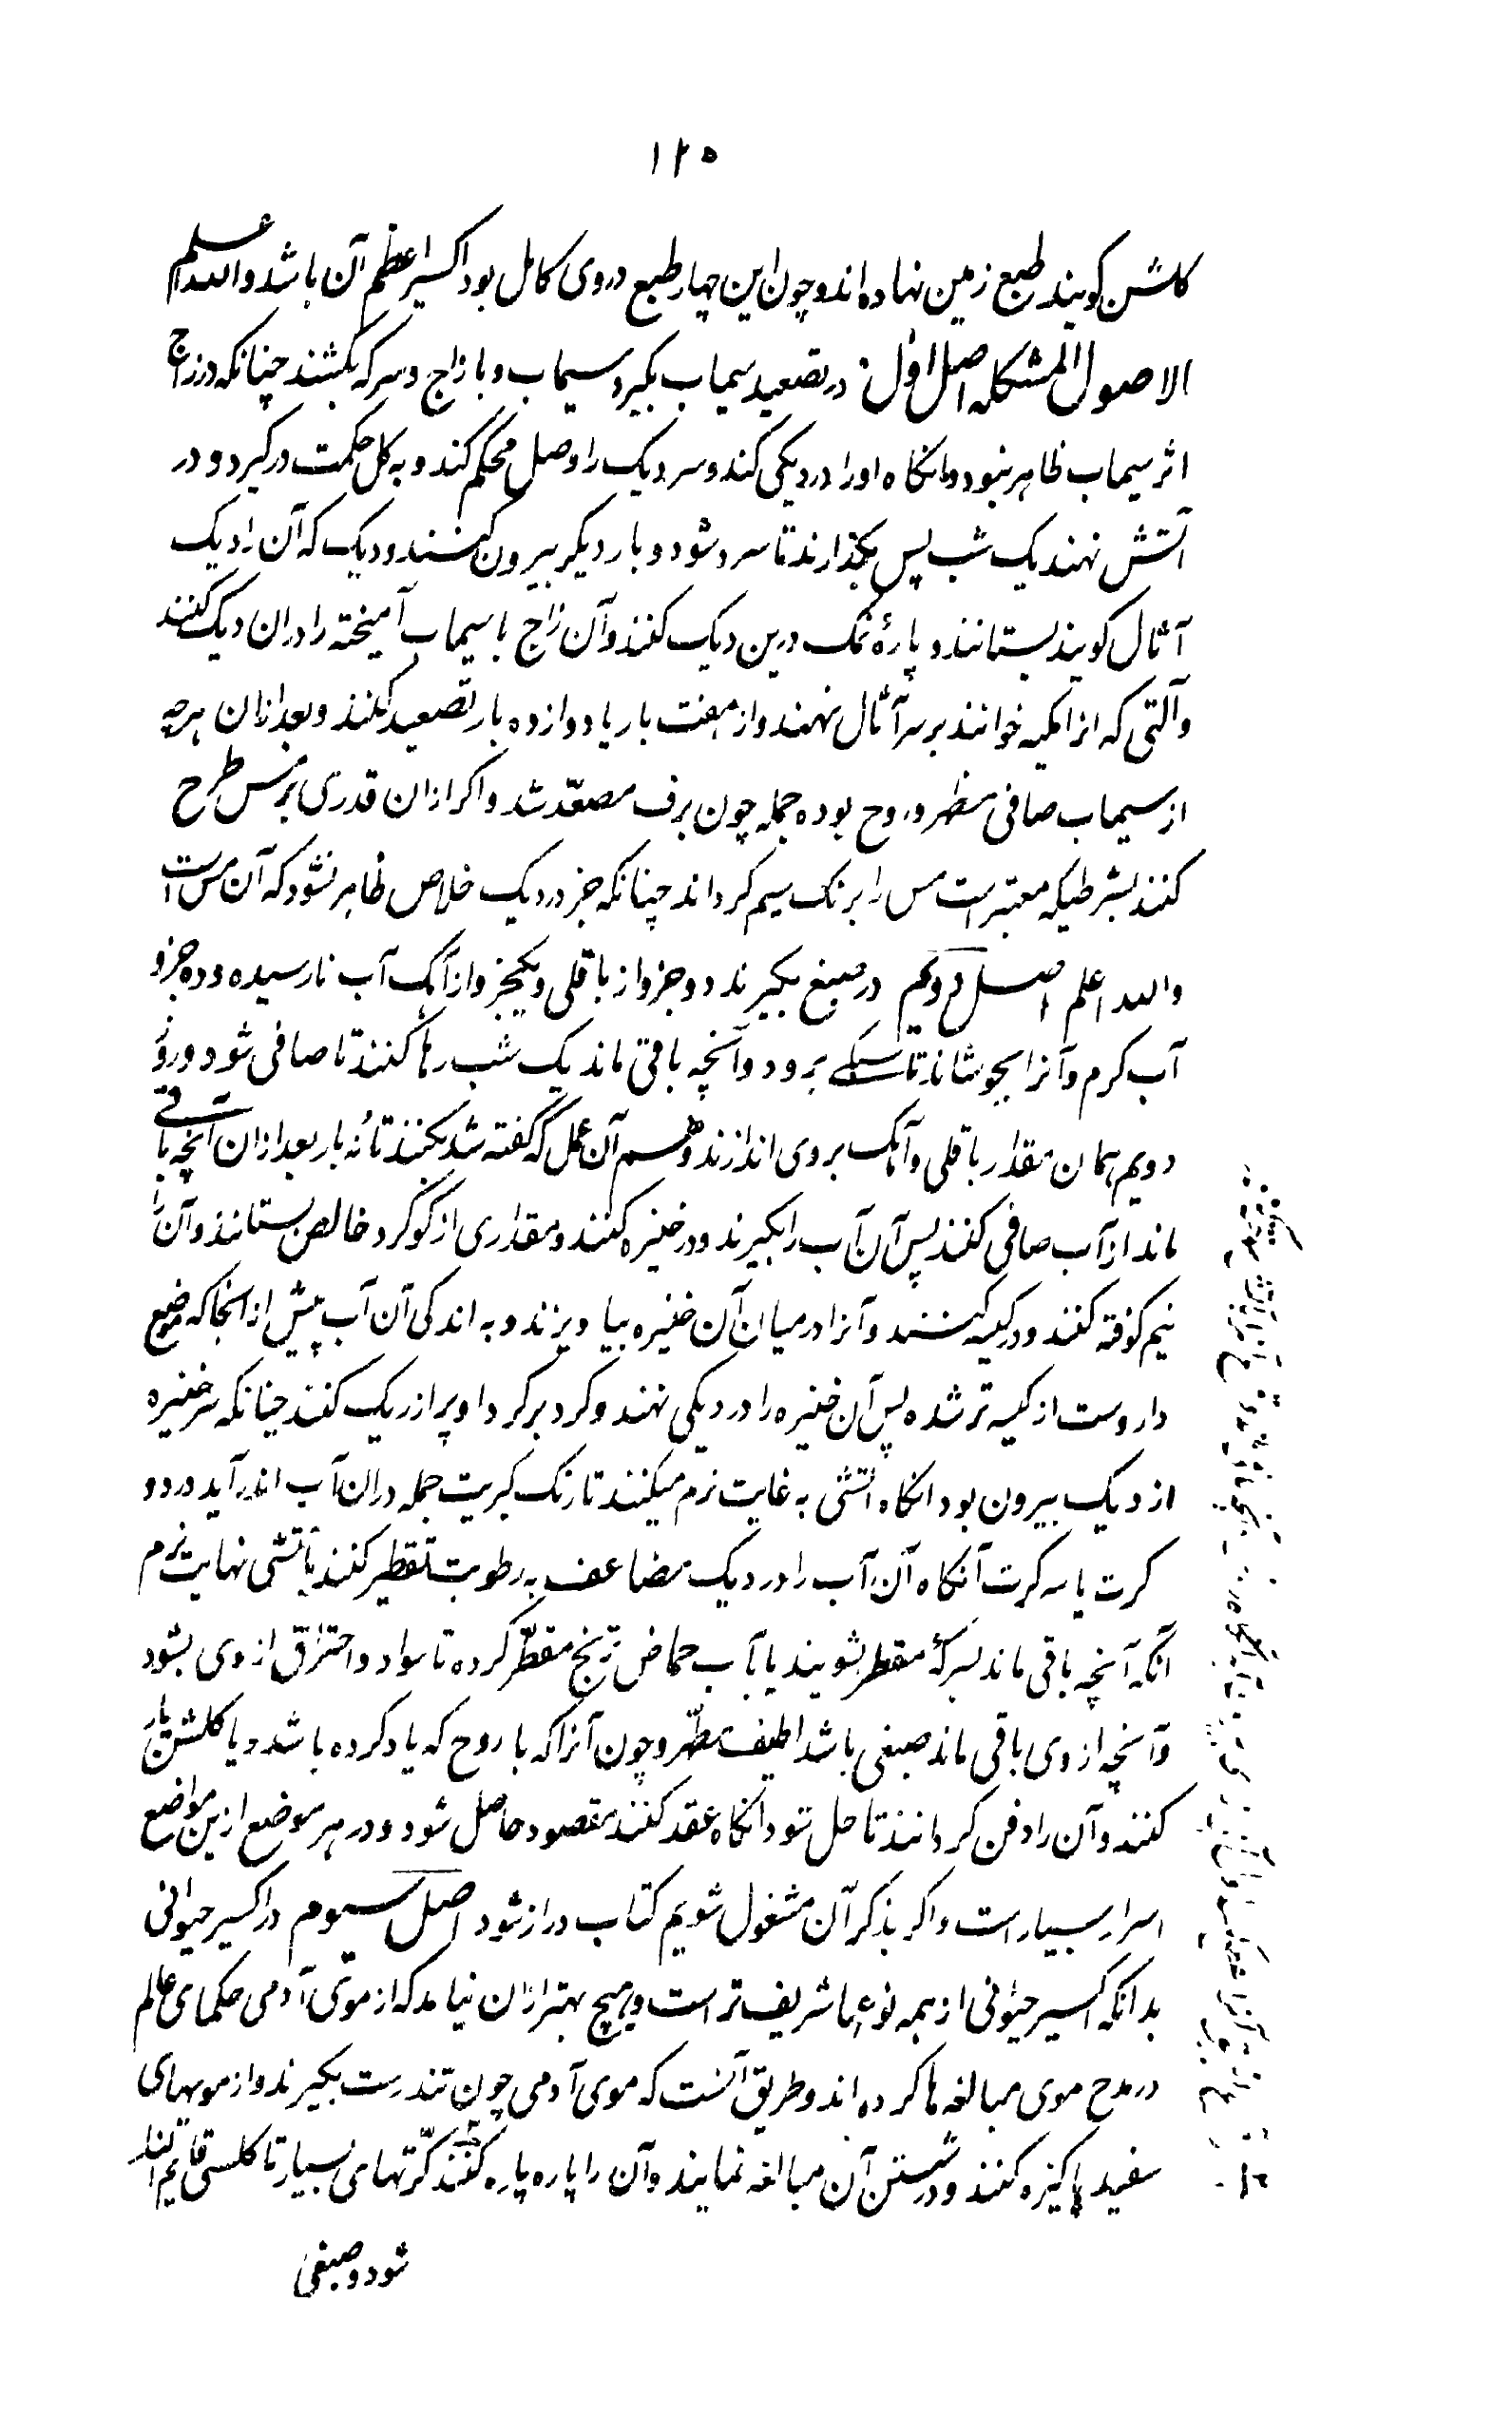 ۱۲۵
کلس کویند طبع زمین نهاده اند و چون این چهار طبع در وی کامل بود اکسیر اعظم آن باشد والله اعلم
الاصول المشکله اصل اول در تصعید سیماب بکیرد سیماب و با زاج و سرکه بکشند چنانکه در زاج
اثر سیماب ظاهر نبود وانکاه او را در دیکی کند و سر دیک را وصل محکم کند و به کل حکمت در کیرد و در
آتش نهند یک شب پس بگذارند تا سرد شود و بار دیکر بیرون کنند و دیک که آن را دیک
آثال کویند بستانند و پارهٔ نمک درین دیک کنند و آن زاج با سیماب آمیخته را دران دیک کنند
و آلتی که انرا مکبه خوانند بر سر آثال نهند و از هفت بار یا دوازده بار تصعید کنند و بعد ازان هرچه
از سیماب صافی مطهر و روح بوده جمله چون برف مصعّد شد و اکر ازان قدری بر مس طرح
کنند بشرطیکه معتبر است مس را برنک سیم کرداند چنانکه جز در دیک خلاص ظاهر نشود که آن مس است
والله اعلم اصل دویم در صبغ بکیرند دو جزو از باقلی و یکجزو از آهک آب نارسیده و ده جزو
آب کرم و آنرا بجوشاند تا برود و آنچه باقی ماند یک شب رها کنند تا صافی شود و روز
دویم همان مقدار باقلی و آهک بروی اندازند و هم آن عمل که گفته شد بکنند تا نُه بار بعد ازان آنچه باقی
ماند از آب صافی کنند پس آن آب را بکیرند و در خنبره کنند و مقداری از کوکرد خالص بستانند و آن را
نیم کوفته کنند و در کیسه کنند و آنرا درمیان آن خنبره بیاویزند و به اندکی آن آب پیش از انجا که موضع
داروست از کیسه تر شده پس آن خنبره را در دیکی نهند و کرد بر کرد او پر از ریک کنند چنانکه سر خنبره
از دیک بیرون بود انکاه آتشی به غایت نرم میکنند تا رنک کبریت جمله دران آب اندر آید در دو
کرت یا سه کرت آنکاه آن آب را در دیک مضاعف به رطوبت تقطیر کنند بآتشی نهایت نرم
آنکه آنچه باقی ماند بسرکهٔ مقطر بشویند یا بآب حماض ترنج مقطّر کرده تا سواد و احتراق از وی بشود
و آنچه از وی باقی ماند صبغی باشد لطیف مطهّر و چون آنرا که با روح که یاد کرده باشد و یا کلسش یار
کنند و آن را دفن کردانند تا حل شود انکاه عقد کنند مقصود حاصل شود و در هر موضع ازین مواضع
اسرار بسیار است و اکر بذکر آن مشغول شویم کتاب دراز شود اصل سیوم در اکسیر حیوانی
بدانکه اکسیر حیوانی از همه نوعها شریف تر است و هیچ بهتر ازان نیامد که از موی آدمی حکمای عالم
در مدح موی مبالغه ها کرده اند و طریق آنست که موی آدمی چون تندرست بکیرند و از مویهای
سفید پاکیزه کنند و در شستن آن مبالغه نمایند و آن را پاره پاره کنند کرّتهای بسیار تا کلسی قایم
شود و صبغی